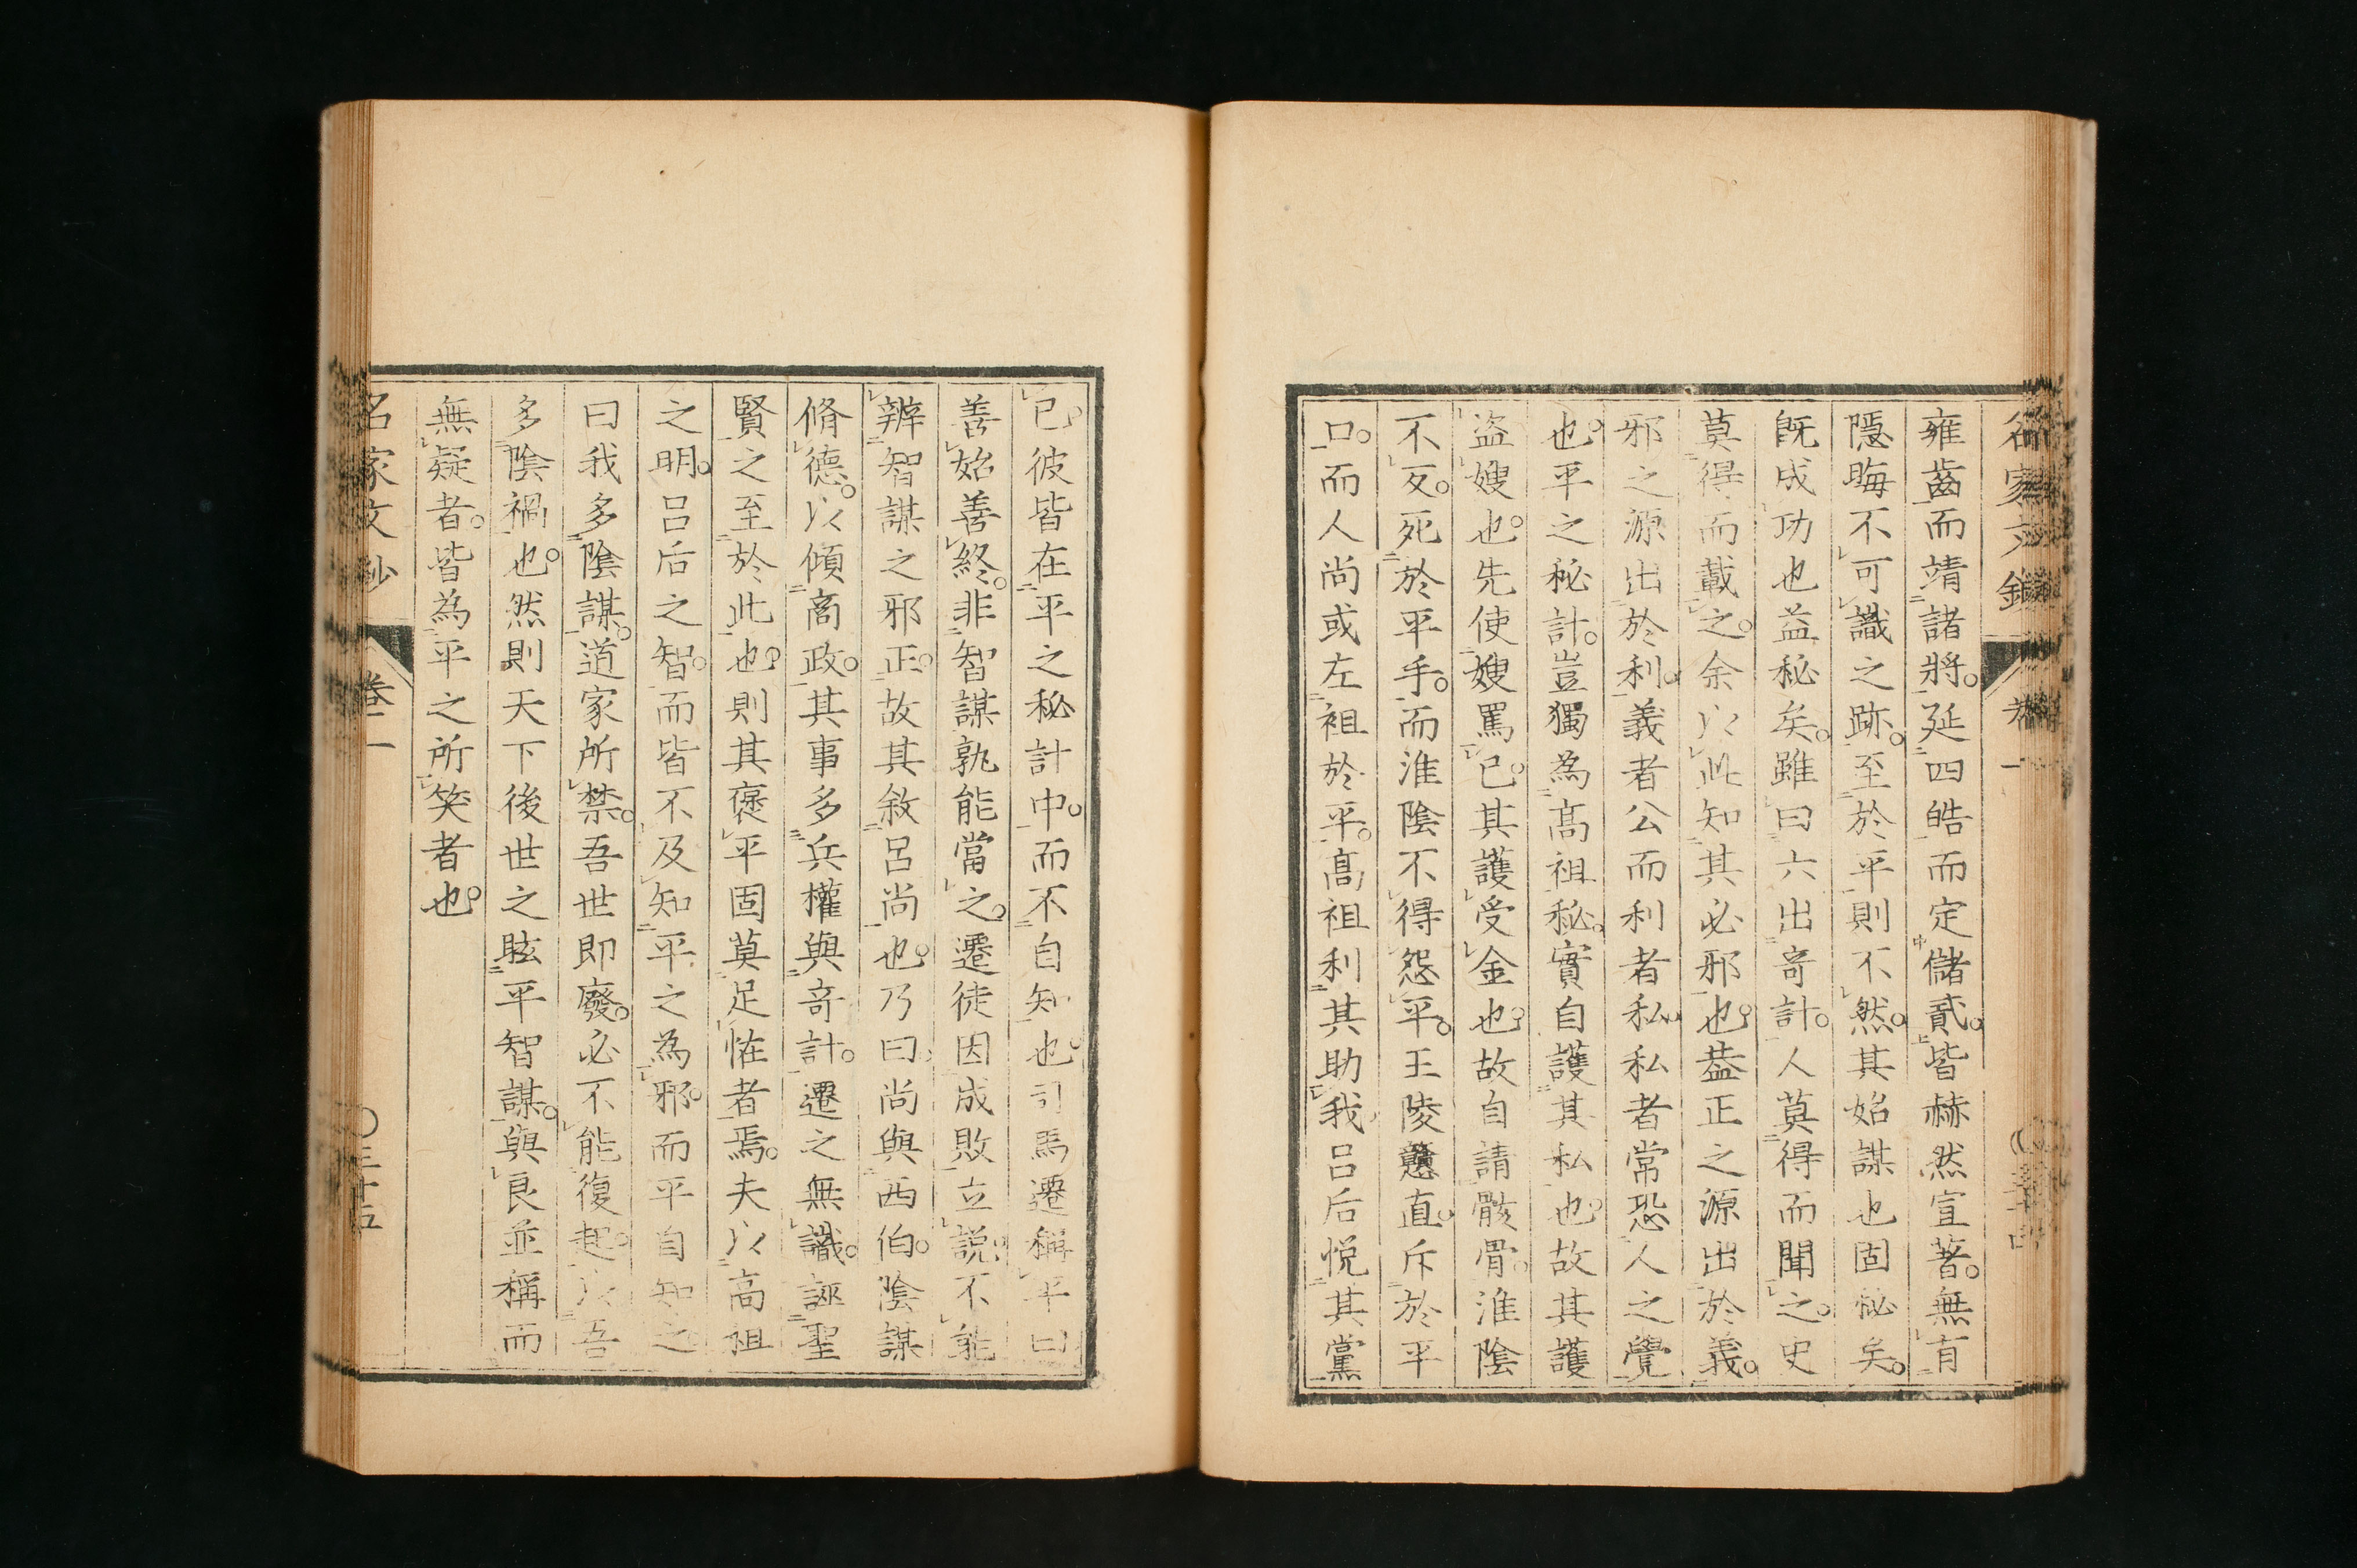 名家文鈔 卷一
雍齒而靖諸將。延四皓而定儲貳。皆赫然宣著。無有
隱晦不可識之跡。至於平則不然。其始謀也固秘矣。
既成功也益秘矣。雖曰六出奇計。人莫得而聞之。史
莫得而載之。余以此知其必邪也。葢正之源出於義。
邪之源出於利。義者公而利者私。私者常恐人之覺
也。平之秘計。豈獨為高祖秘。實自護其私也。故其護
盜嫂也。先使嫂罵已。其護受金也。故自請骸骨。淮陰
不反。死於平手。而淮陰不得怨平。王陵戇直。斥於平
口。而人尚或左袒於平。高祖利其助我呂后悅其黨
已。彼皆在平之秘計中。而不自知也。司馬遷稱平曰
善始善終。非智謀孰能當之。遷徒因成敗立說。不能
辨智謀之邪正。故其敘呂尚也。乃曰尚與西伯。陰謀
脩德。以傾商政。其事多兵權與奇計。遷之無識。誣聖
賢之至於此也。則其褒平固莫足恠者焉。夫以高祖
之明。呂后之智。而皆不及知平之為邪。而平自知之
曰我多陰謀。道家所禁。吾世即廢。必不能復起。以吾
多陰禍也。然則天下後世之眩平智謀。與良並稱而
無疑者。皆為平之所笑者也。
名家文鈔 卷一 〇三十五